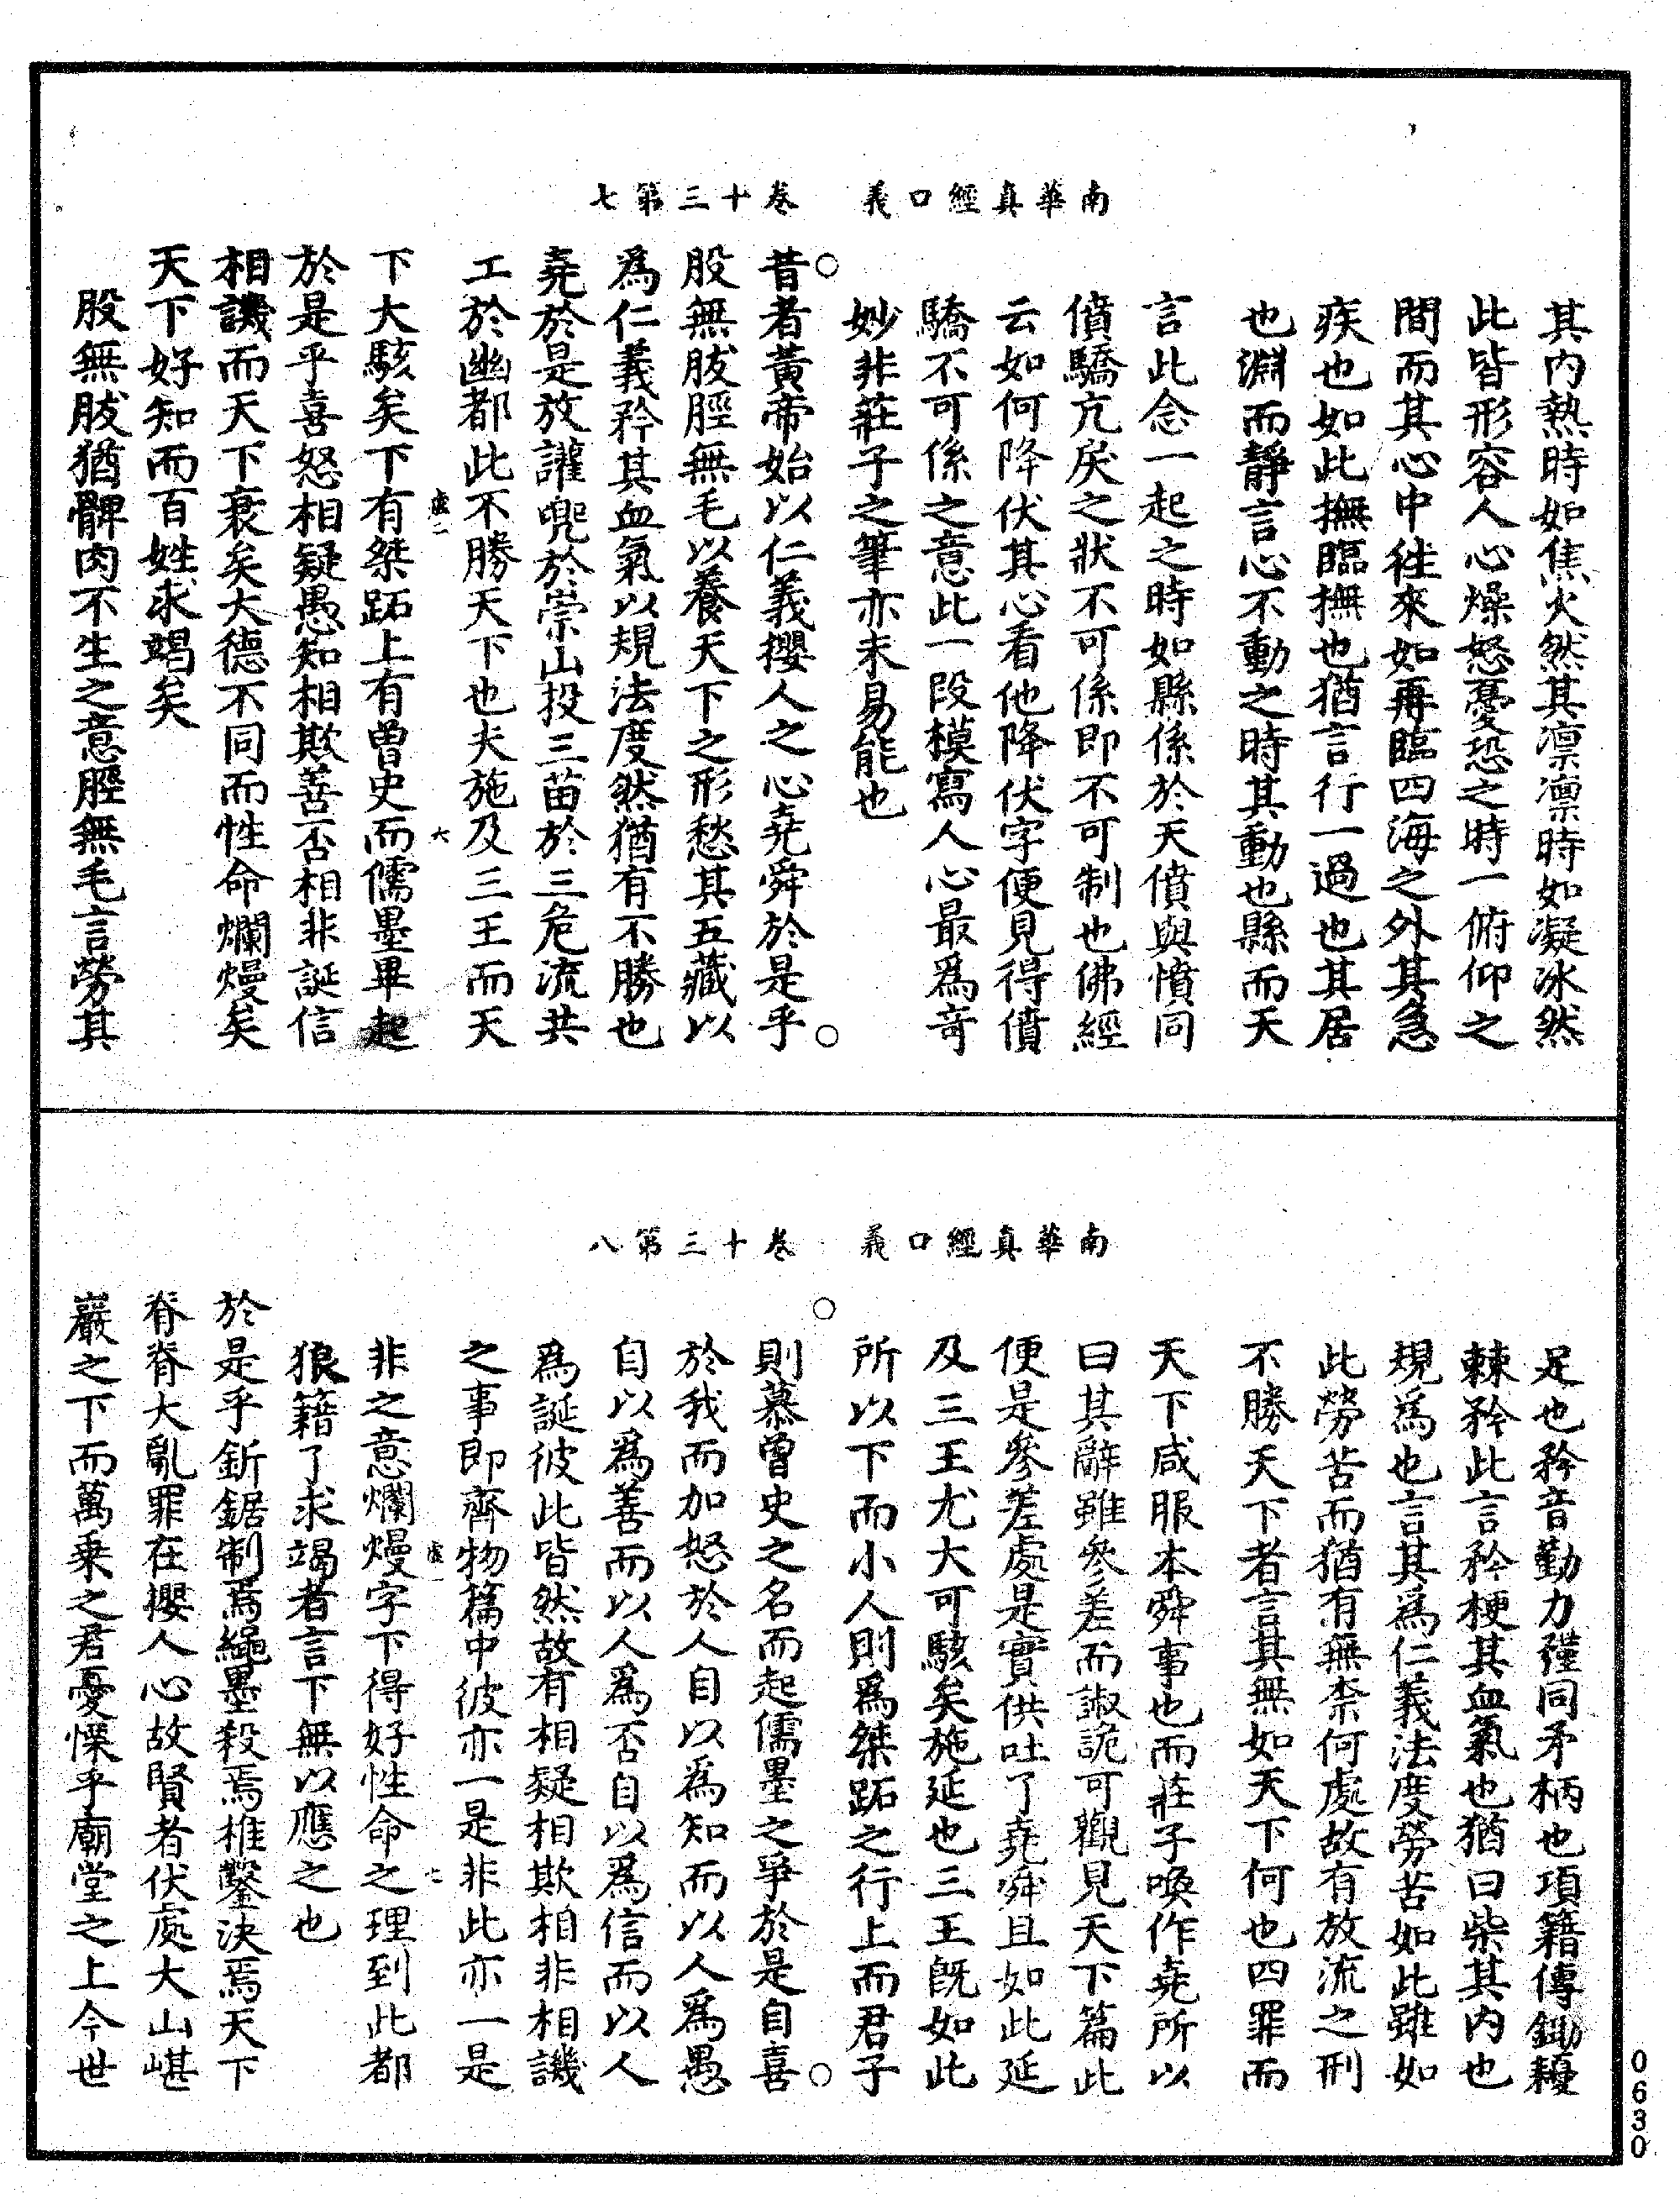 南華真經口義　卷十三第七
其內熱時如焦火然其凛凛時如凝冰然
此皆形容人心燥怒憂恐之時一俯仰之
間而其心中徃來如再臨四海之外其急
疾也如此撫臨撫也猶言行一過也其居
也淵而靜言心不動之時其動也縣而天
言此念一起之時如縣係於天僨與憤同
僨驕亢戾之狀不可係即不可制也佛經
云如何降伏其心看他降伏字便見得僨
驕不可係之意此一段模寫人心最爲奇
妙非莊子之筆亦未易能也
昔者黃帝始以仁義攖人之心堯舜於是乎
股無胈脛無毛以養天下之形愁其五藏以
爲仁義矜其血氣以規法度然猶有不勝也
堯於是放讙兜於崇山投三苗於三危流共
工於幽都此不勝天下也夫施及三王而天
虛二　六
下大駭矣下有桀跖上有曾史而儒墨畢起
於是乎喜怒相疑愚知相欺善否相非誕信
相譏而天下衰矣大德不同而性命爛熳矣
天下好知而百姓求竭矣
股無胈猶髀肉不生之意脛無毛言勞其
南華真經口義　卷十三第八
足也矜音勤力𥎊同矛柄也項籍傳鋤耰
棘矜此言矜梗其血氣也猶曰柴其內也
規爲也言其爲仁義法度勞苦如此雖如
此勞苦而猶有無柰何處故有放流之刑
不勝天下者言其無如天下何也四罪而
天下咸服本舜事也而莊子喚作堯所以
曰其辭雖參差而諔詭可觀見天下篇此
便是參差處是實供吐了堯舜且如此延
及三王尤大可駭矣施延也三王旣如此
所以下而小人則爲桀跖之行上而君子
則慕曾史之名而起儒墨之爭於是自喜
於我而加怒於人自以爲知而以人爲愚
自以爲善而以人爲否自以爲信而以人
爲誕彼此皆然故有相疑相欺相非相譏
之事即齊物篇中彼亦一是非此亦一是
虛一　七
非之意爛熳字下得好性命之理到此都
狼籍了求竭者言下無以應之也
於是乎釿鋸制焉繩墨殺焉椎鑿決焉天下
脊脊大亂罪在攖人心故賢者伏處大山嵁
巖之下而萬乘之君憂慄乎廟堂之上今世
0630